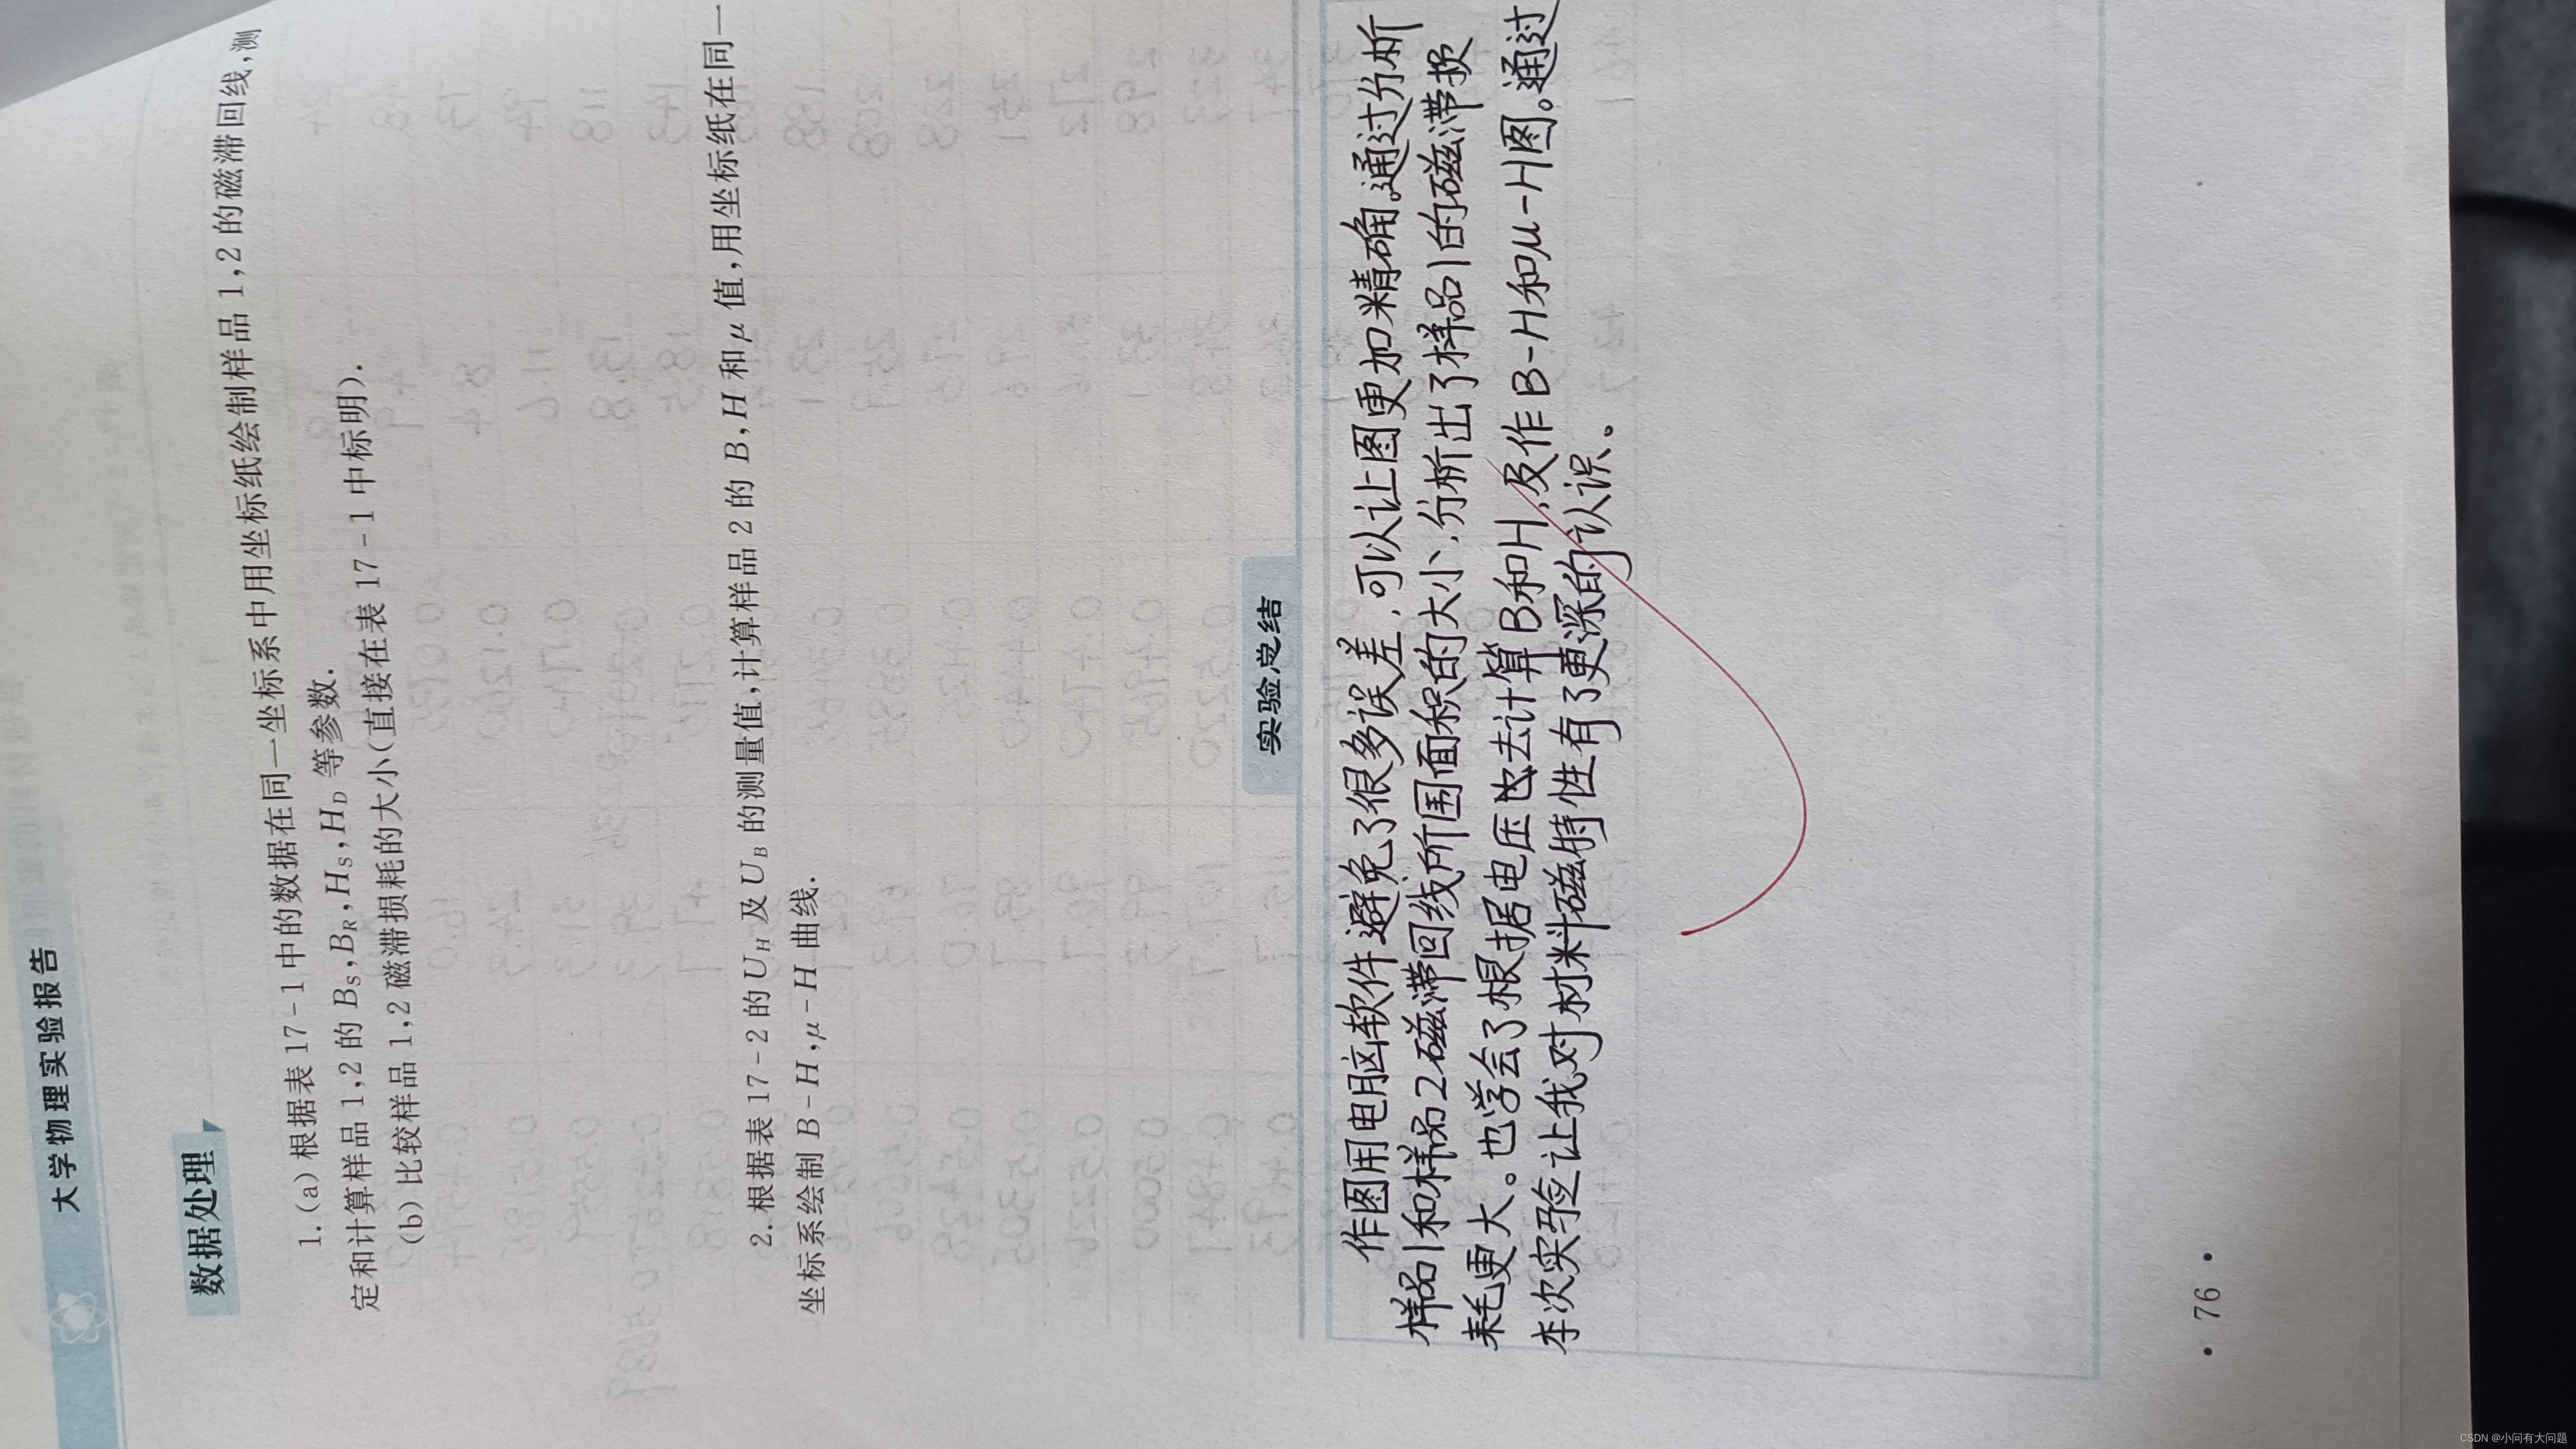 大学物理实验报告
数据处理
1.(a)根据表17-1中的数据在同一坐标系中用坐标纸绘制样品1,2的磁滞回线,测
定和计算样品1,2的B_S,B_R,H_S,H_D等参数.
(b)比较样品1,2磁滞损耗的大小(直接在表17-1中标明).
2.根据表17-2的U_H及U_B的测量值,计算样品2的B,H和μ值,用坐标纸在同一
坐标系绘制B-H,μ-H曲线.
实验总结
作图用电脑软件避免了很多误差,可以让图更加精确。通过分析
样品1和样品2磁滞回线所围面积的大小,分析出了样品1的磁滞损
耗更大。也学会了根据电压去计算B和H,及作B-H和μ-H图。通过
本次实验让我对材料磁特性有了更深的认识。
·76·
CSDN @小问有大问题